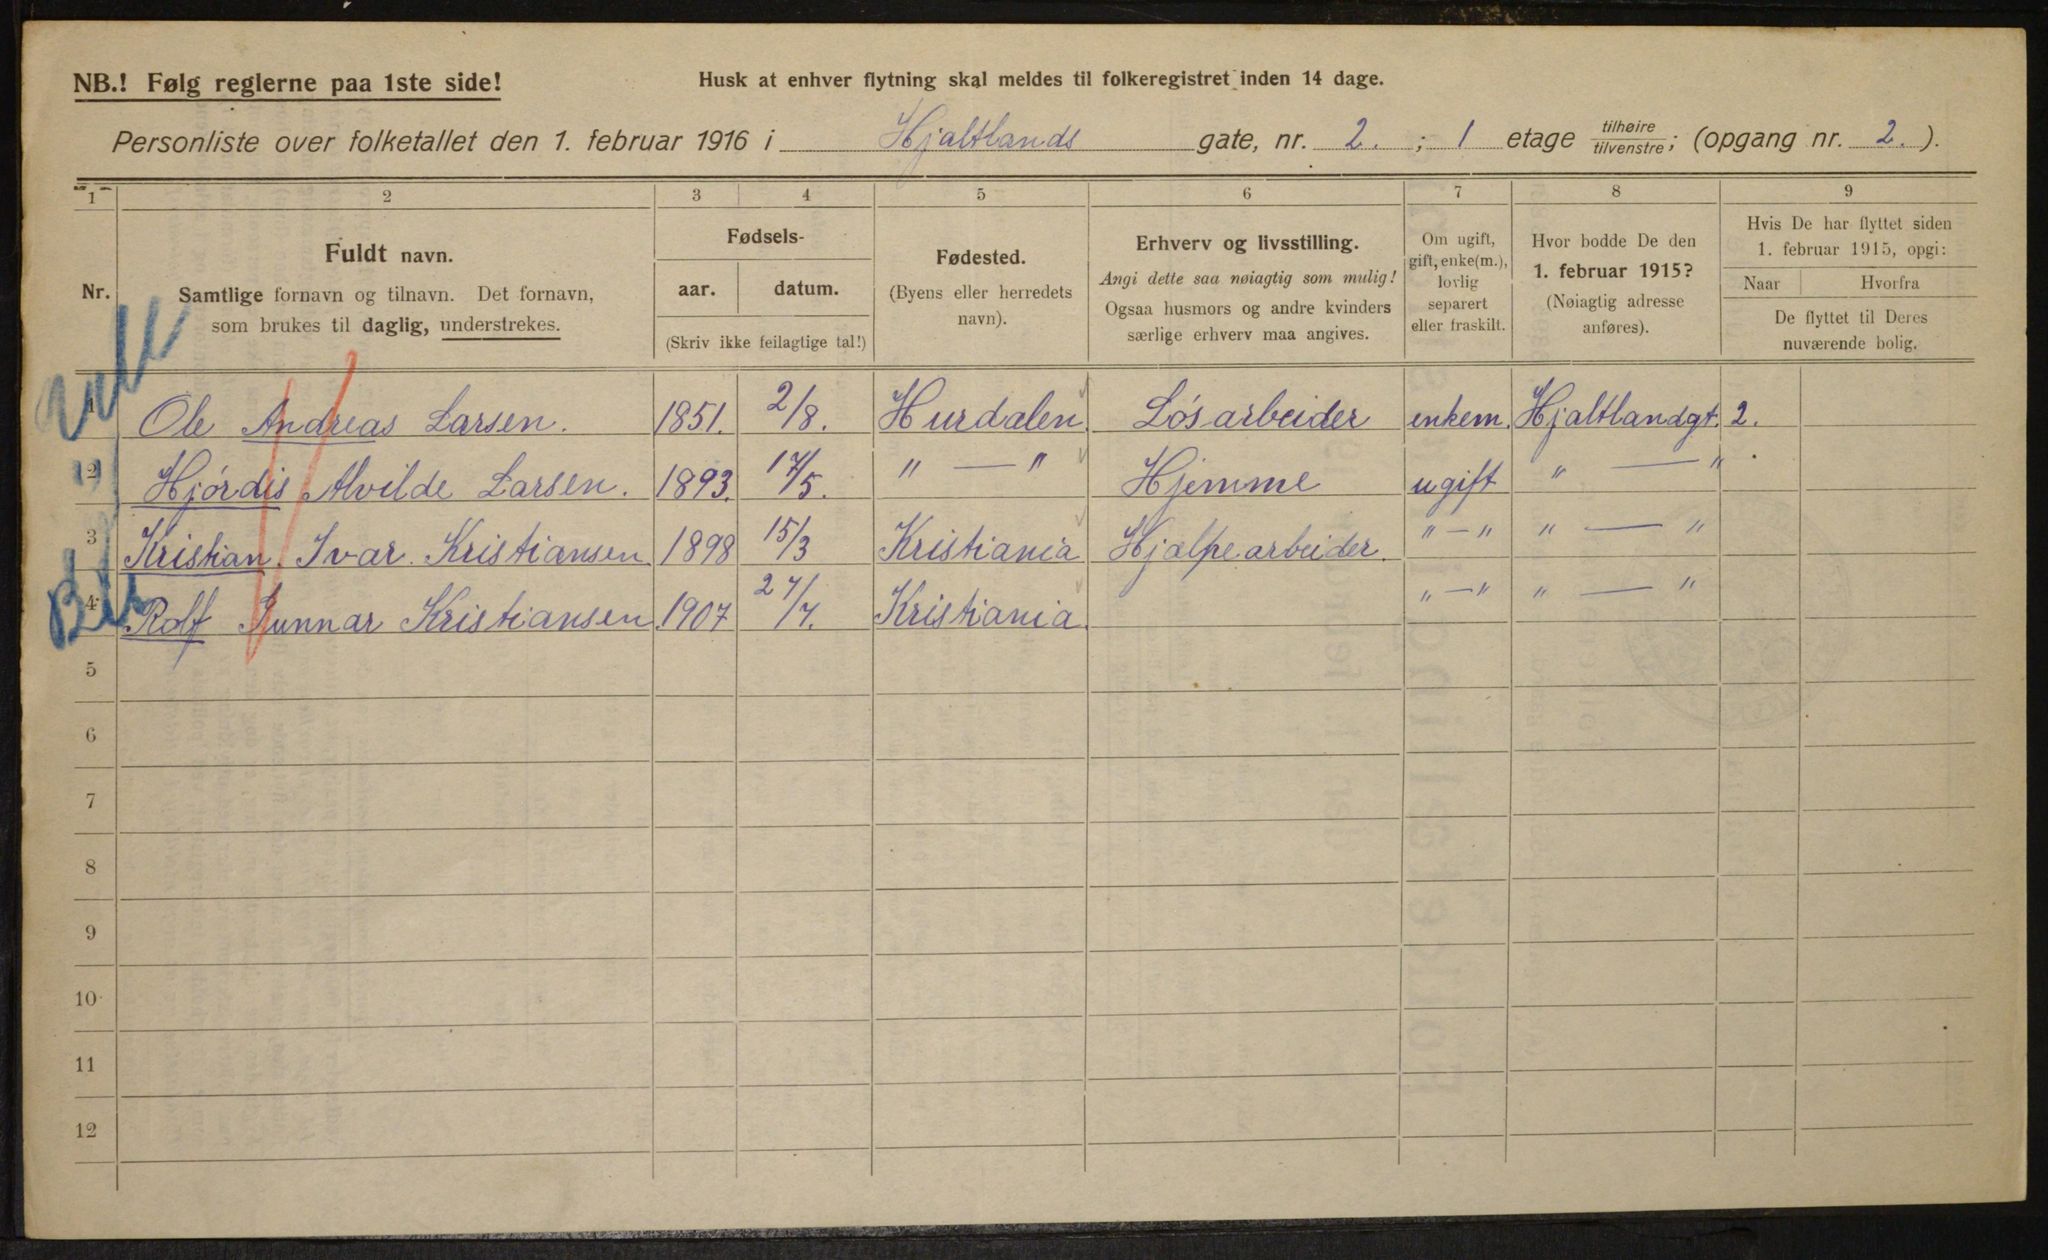 NB.! Følg reglerne paa 1ste side!
Husk at enhver flytning skal meldes til folkeregistret inden 14 dage.
Personliste over folketallet den 1. februar 1916 i Hjaltlands gate, nr. 2. ; 1 etage tilhøire tilvenstre; (opgang nr. 2.).
1 2 3 4 5 6 7 8 9
Nr.
Fuldt navn.
Samtlige fornavn og tilnavn. Det fornavn,
som brukes til daglig, understrekes.
Fødsels-
aar. datum.
(Skriv ikke feilagtige tal!)
Fødested.
(Byens eller herredets
navn).
Erhverv og livsstilling.
Angi dette saa nøiagtig som mulig!
Ogsaa husmors og andre kvinders
særlige erhverv maa angives.
Om ugift,
gift, enke(m.),
lovlig
separert
eller fraskilt.
Hvor bodde De den
1. februar 1915?
(Nøiagtig adresse
anføres).
Hvis De har flyttet siden
1. februar 1915, opgi:
Naar Hvorfra
De flyttet til Deres
nuværende bolig.
1 Ole Andreas Larsen. 1851. 2/8. Hurdalen Løsarbeider enkem. Hjaltlandgt. 2.
2 Hjørdis Alvilde Larsen. 1893. 17/5. " — " Hjemme ugift " — "
3 Kristian. Ivar. Kristiansen 1898 15/3 Kristiania Hjælpearbeider. " — " " — "
4 Rolf Gunnar Kristiansen 1907 27/7. Kristiania " — " " — "
5
6
7
8
9
10
11
12